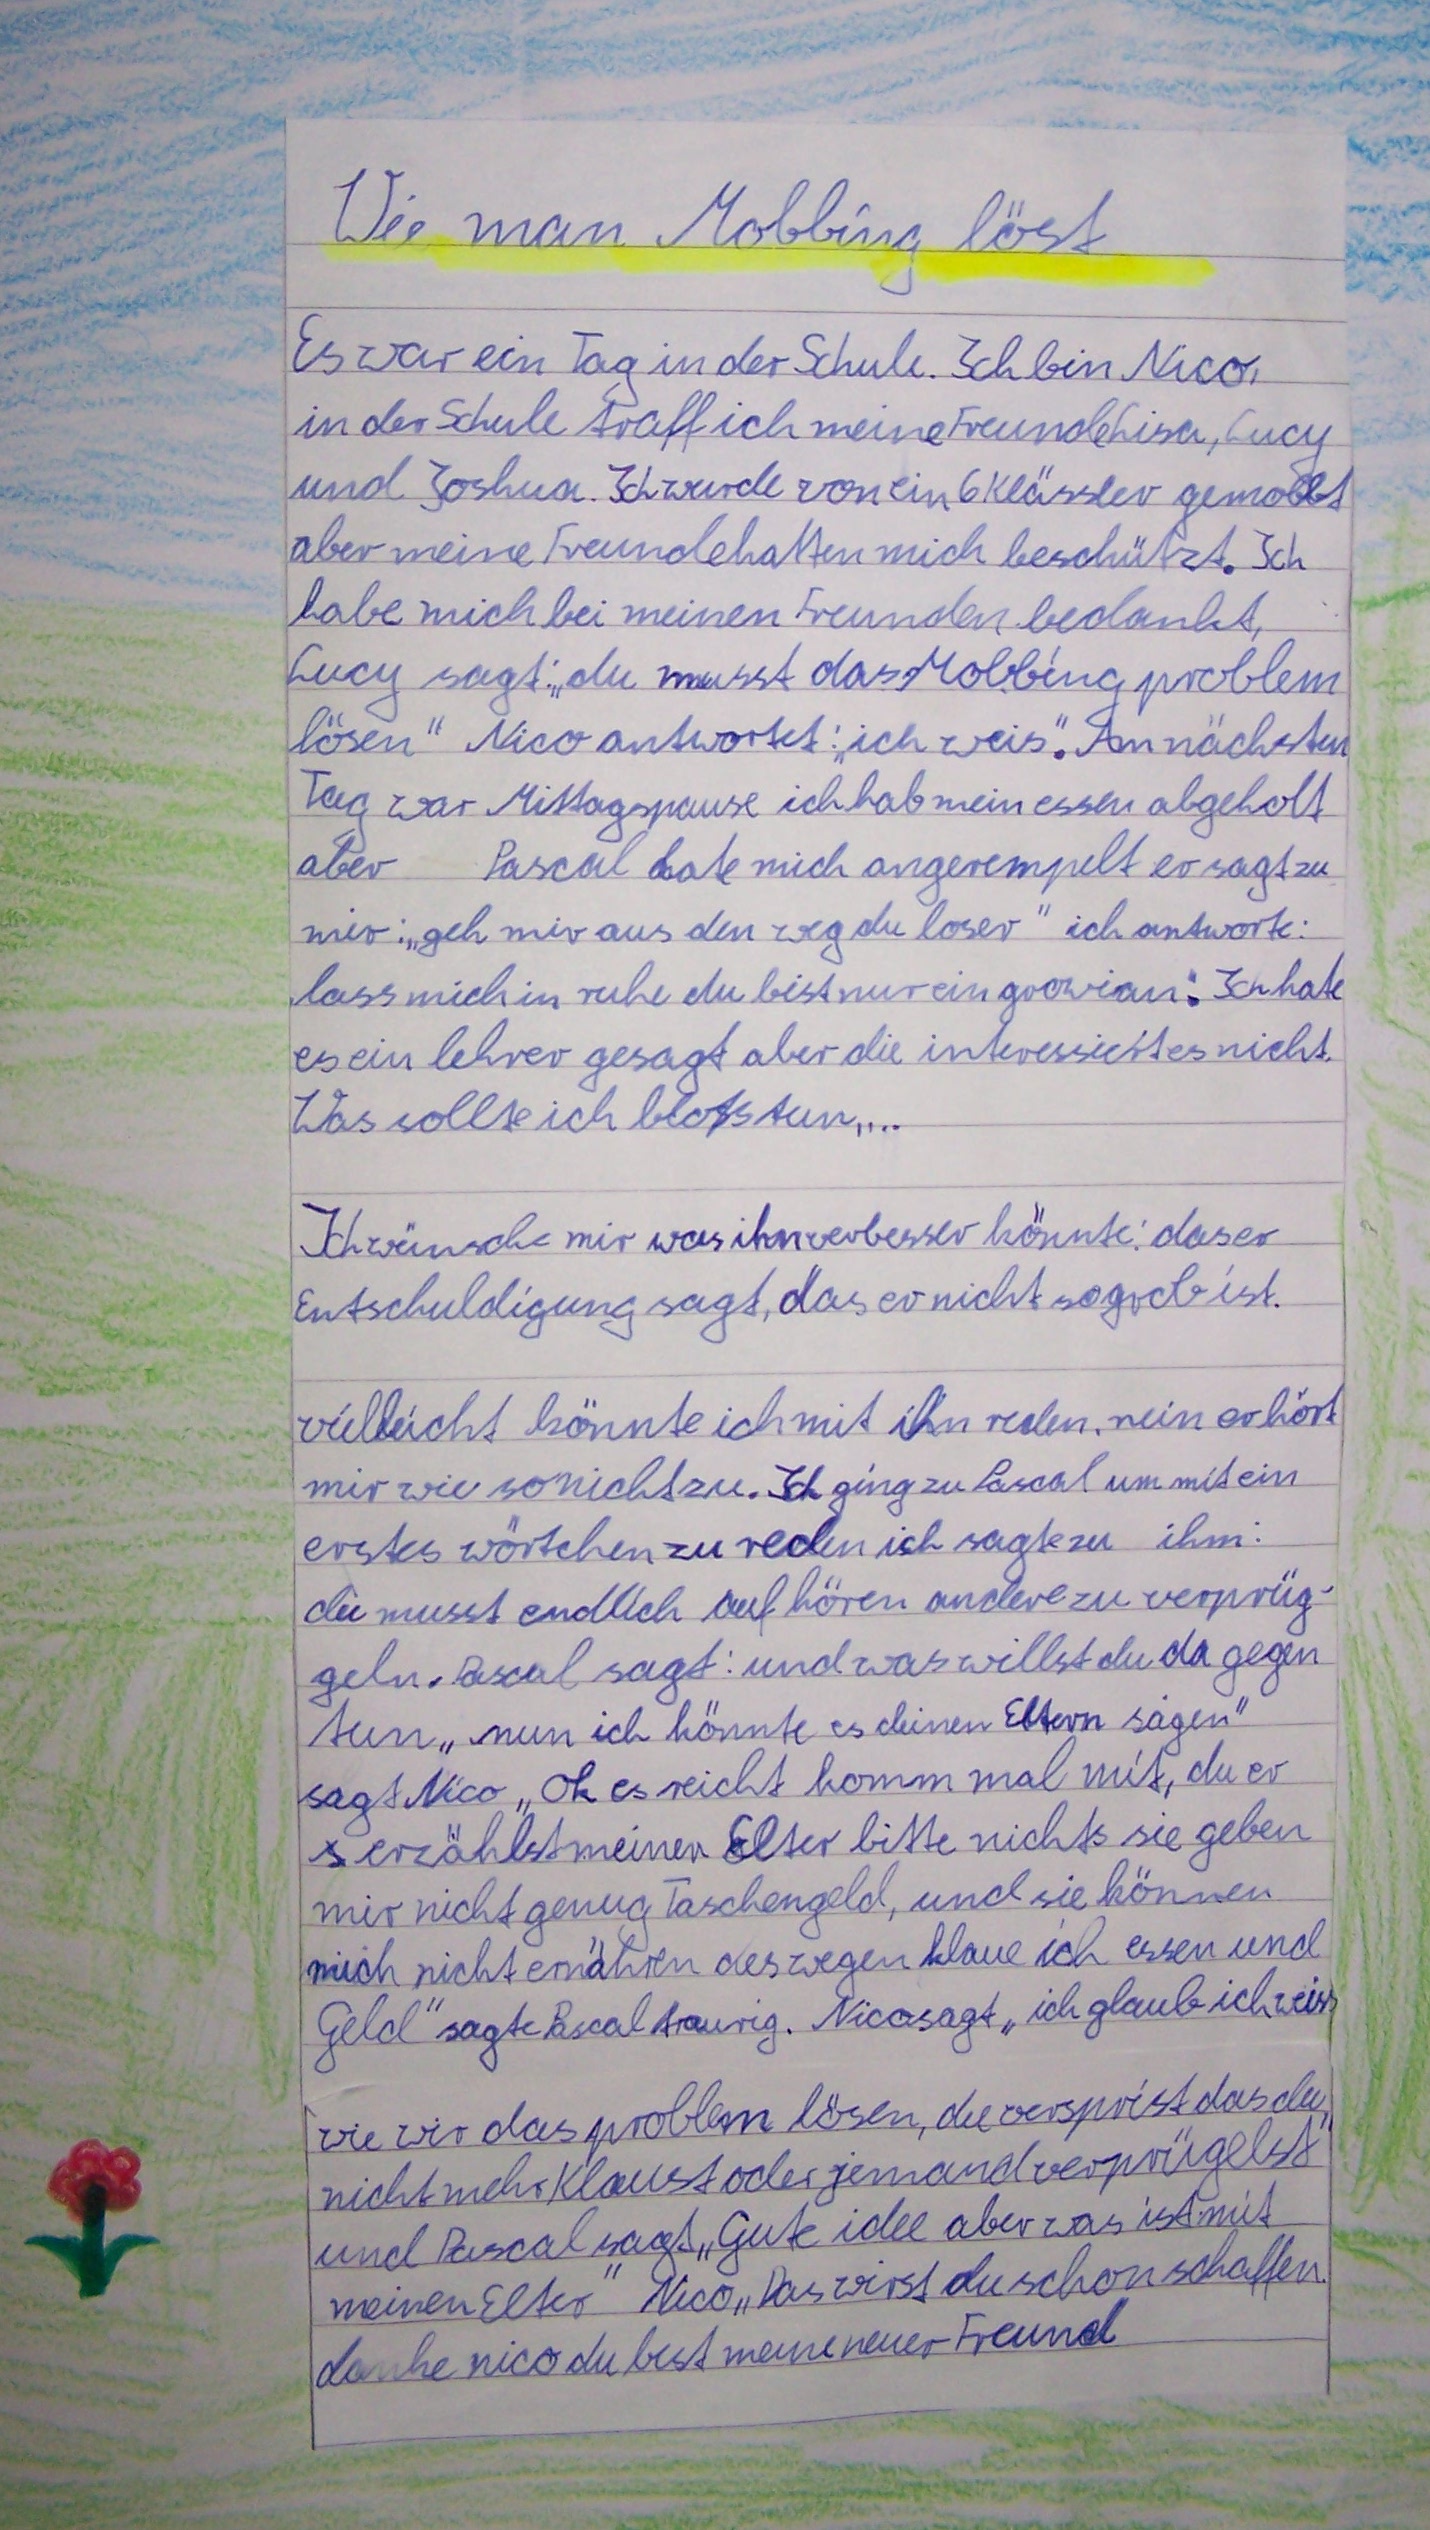 Wie man Mobbing löst
Es war ein Tag in der Schule. Ich bin Nico,
in der Schule traff ich meine Freunde Lisa, Lucy
und Joshua. Ich wurde von ein 6 Klässler gemobbt
aber meine Freunde hatten mich beschützt. Ich
habe mich bei meinen Freunden bedankt,
Lucy sagt: „du musst das Mobbing problem
lösen" Nico antwortet: „ich weis". Am nächsten
Tag war Mittagspause ich hab mein essen abgeholt
aber Pascal hate mich angerempelt er sagt zu
mir: „geh mir aus den weg du loser" ich antworte:
lass mich in ruhe du bist nur ein growian". Ich hate
es ein lehrer gesagt aber die interessiert es nicht.
Was sollte ich bloß tun,...
Ich wünsche mir was ihn verbesser könnte: das er
Entschuldigung sagt, das er nicht so grob ist.
villeicht könnte ich mit ihn reden. nein er hört
mir wie so nicht zu. Ich ging zu Pascal um mit ein
erstes wörtchen zu reden ich sagte zu ihm:
du musst endlich auf hören andere zu verprüg-
geln. Pascal sagt: und was willst du da gegen
tun „nun ich könnte es deinen Eltern sagen"
sagt Nico „Ok es reicht komm mal mit, du er
erzählst meinen Elter bitte nichts sie geben
mir nicht genug Taschengeld, und sie können
mich nicht ernähren deswegen klaue ich essen und
Geld" sagte Pascal traurig. Nico sagt „ich glaub ich weiss
wie wir das problem lösen, du versprist das du
nicht mehr Klaust oder jemand verprügelst"
und Pascal sagt „Gute idee aber was ist mit
meinen Elter" Nico „Das wirst du schon schaffen.
danke nico du bist meine neuer Freund